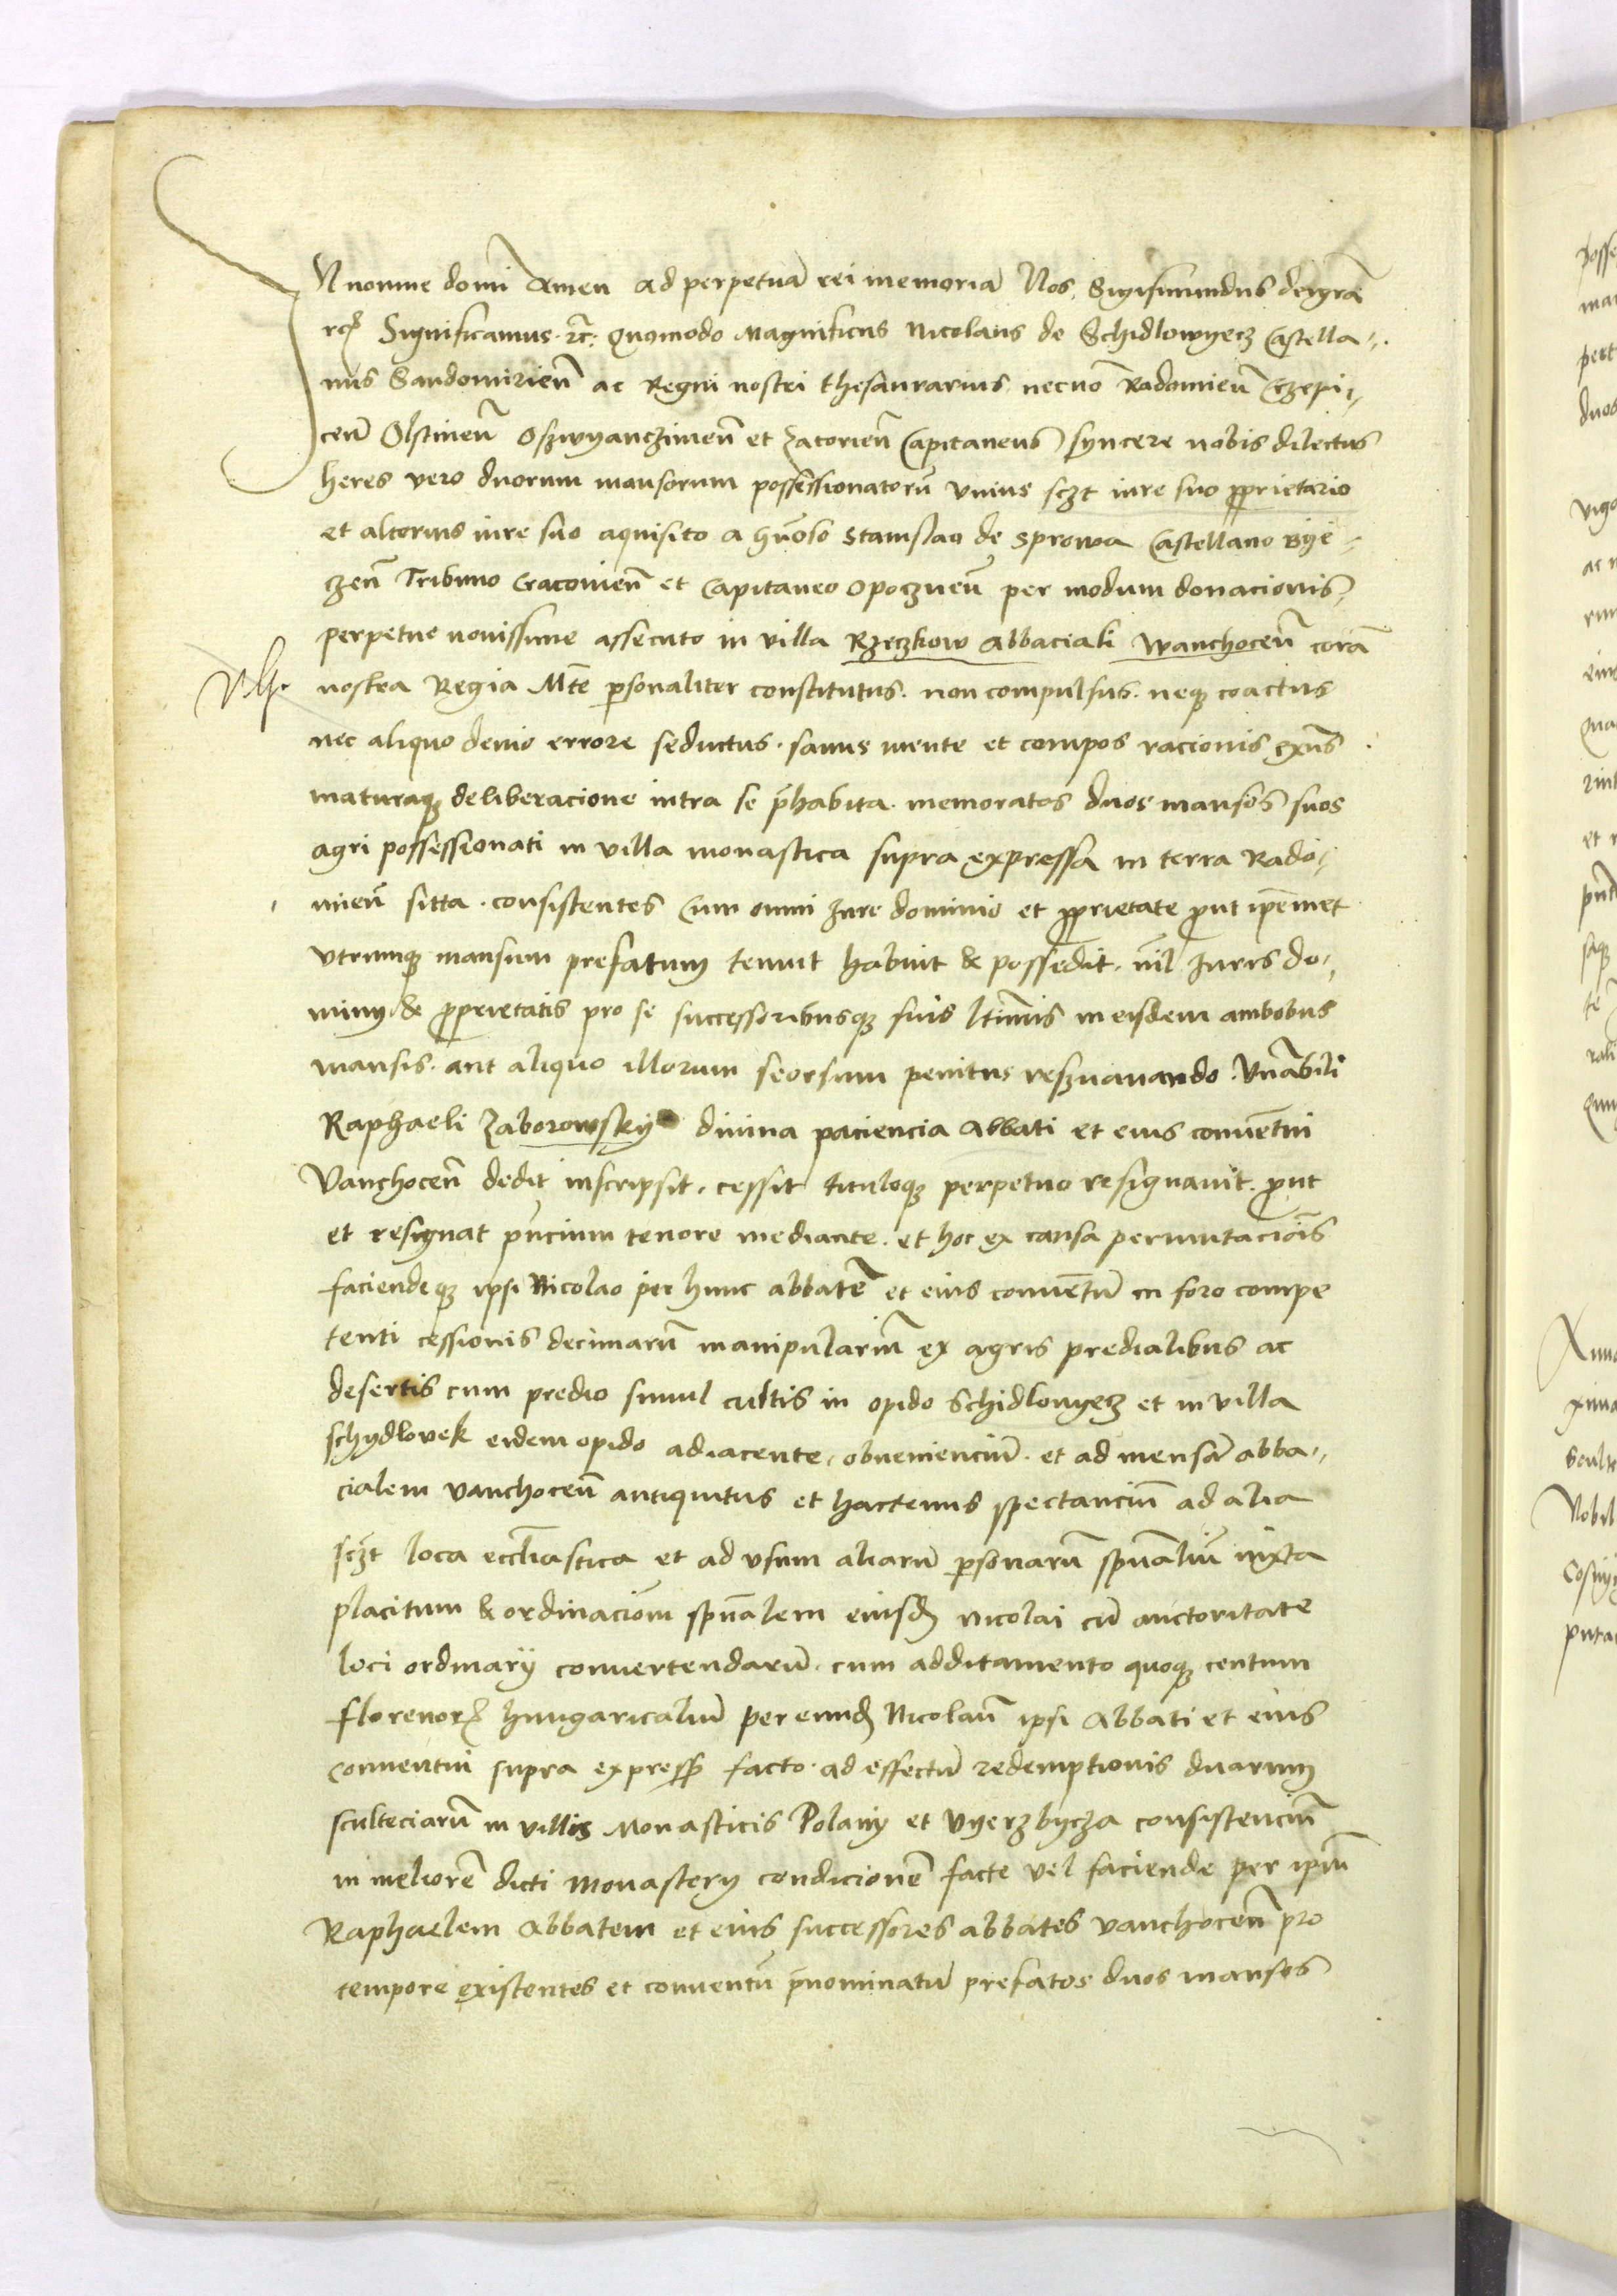 IN nomine domi Amen Ad perpetuā rei memoriā Nos Sigismundus dei grā
rex Significamus etc. Quomodo Magnificus Nicolaus de Schidlowyecz Castella-
nus Sandomirieñ ac Regni nostri thesaurarius necnō Radomieñ Czepi-
ceñ Olstineñ Oszwyanczimeñ et Zatorieñ Capitaneus syncere nobis dilectus
heres vero duorum mansorum possessionatorū vnius sczt iure suo proprietario
et alterius iure suo aquisito a gñoso Stanislao de Sprowa Castellano Bye-
czeñ Tribuno Cracovieñ et Capitaneo Opoczneñ per modum donacionis
perpetue nouissime assecuto in villa Rzeczkow Abbaciali Wanchoceñ corā
nostra Regia Mte personaliter constitutus. non compulsus. neque coactus
nec aliquo deuio errore seductus. sanus mente et compos racionis exñs
maturaque deliberacione intra se p̄habita. memoratos duos mansos suos
agri possessionati in villa monastica supra expressa in terra Rado-
mieñ sitta. consistentes Cum omni Jure dominio et proprietate prout ipēmet
vtrumque mansum prefatum tenuit habuit & possedit. nil Juris do-
minij & proprietatis pro se successoribusque suis ltimis in eisdem ambobus
mansis. aut aliquo illorum seorsum penitus reszeruando. Vñabili
Raphaeli Zaborowsky diuina paciencia Abbati et eius conuētui
Vanchoceñ dedit inscripsit. cessit tituloque perpetuo resignauit. prout
et resignat p̄ncium tenore mediante. et hoc ex causa permutaciōis
faciendeque ipsi Nicolao per hunc abbatē et eius conuētū in foro compe
tenti cessionis decimarū manipulariū ex agris predialibus ac
desertis cum predio simul cultis in opido Schidlouyecz et in villa
schydlovek eidem opido adiacente. obueniencium. et ad mensā abba-
cialem vanchoceñ antiquitus et hactenus spectanciū ad alia
sczt loca eccliastica et ad vsum aliarū personarū spūaliū iuxta
placitum & ordinaciōm spūalem eiusdem Nicolai cū auctoritate
loci ordinarij conuertendarū. cum additamento quoque centum
florenorum hungaricaliū per eundem Nicolaū ipsi Abbati et eius
conuentui supra expresso facto. ad effectū redemptionis duarum
scultetiarū in villis Monasticis Polany et Vyerzbycza consistenciū
in meliorē dicti Monastery condicionē facte vel faciende per ipm̄
Raphaelem Abbatem et eius successores abbates vanchoceñ pro
tempore existentes et conuentū p̄nominatū prefatos duos mansos